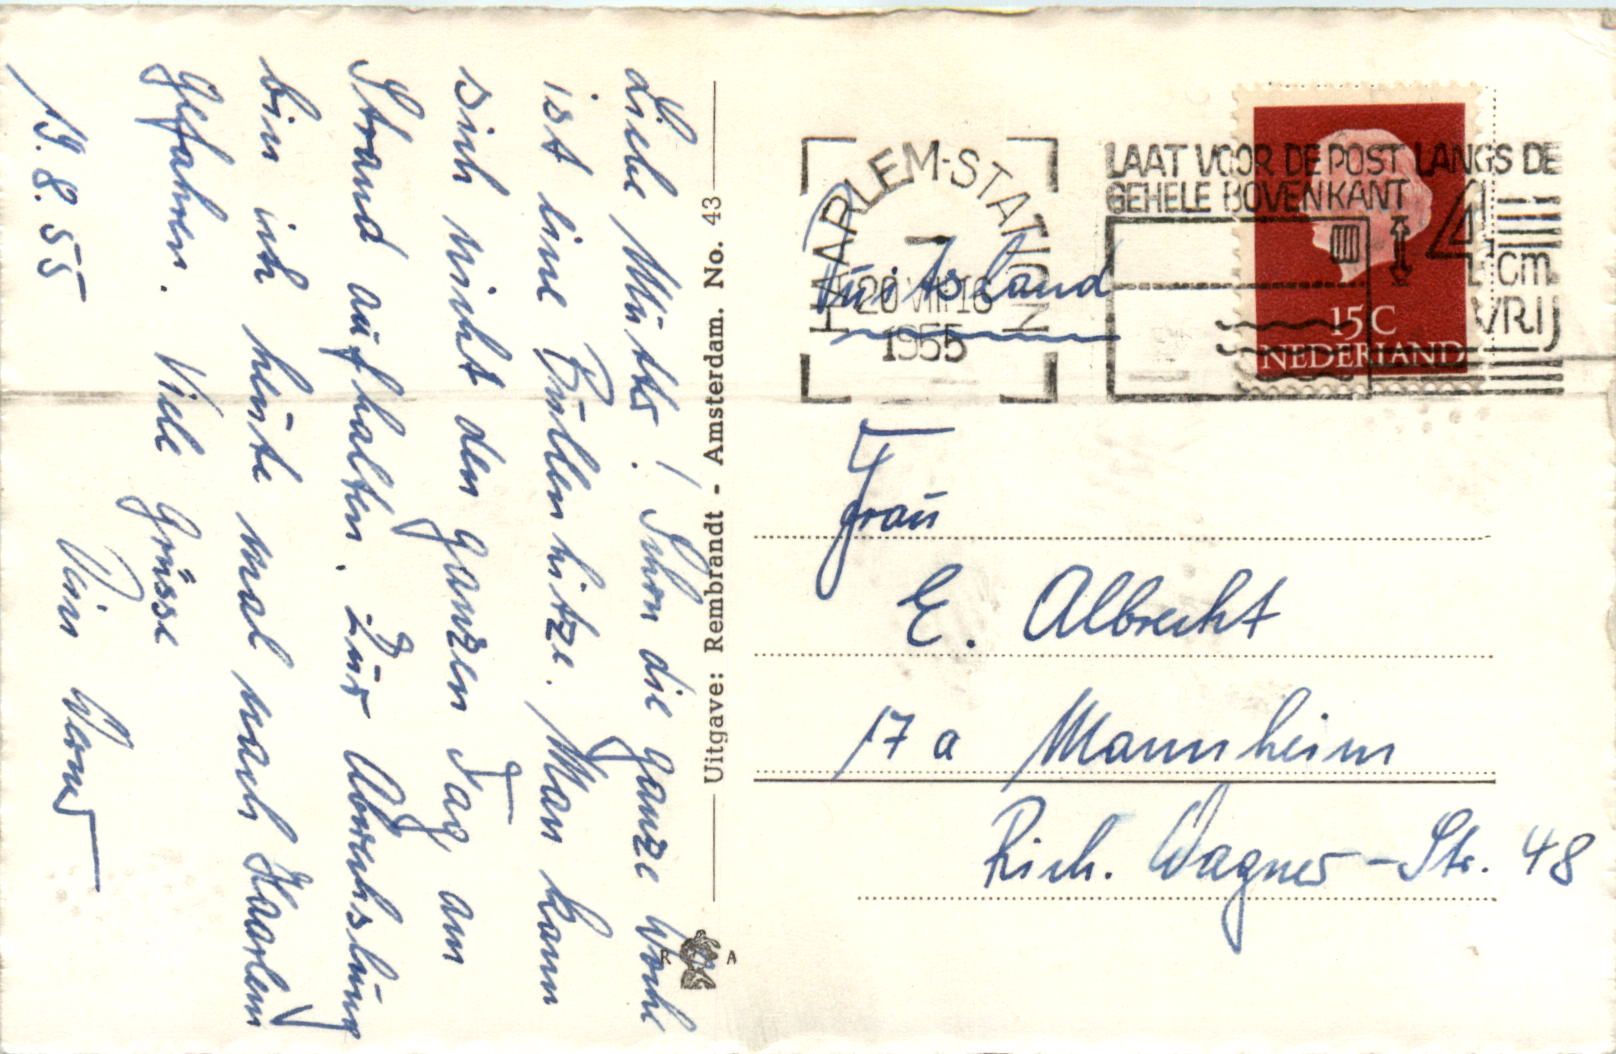 Liebe Mutti! Schon die ganze Woche
ist eine Bullenhitze. Man kann
sich nicht den ganzen Tag am
Strand aufhalten. Zur Abwechslung
bin ich heute mal nach Haarlem
gefahren. Viele Grüsse
Dein Werner
19.8.55
Uitgave: Rembrandt - Amsterdam. No. 43
R A
HAARLEM-STATION
20 VIII 16
1955
LAAT VOOR DE POST LANGS DE
GEHELE BOVENKANT 4
cm
VRIJ
15 C
NEDERLAND
Duitsland
Frau
E. Albrecht
17a Mannheim
Rich. Wagner-Str. 48